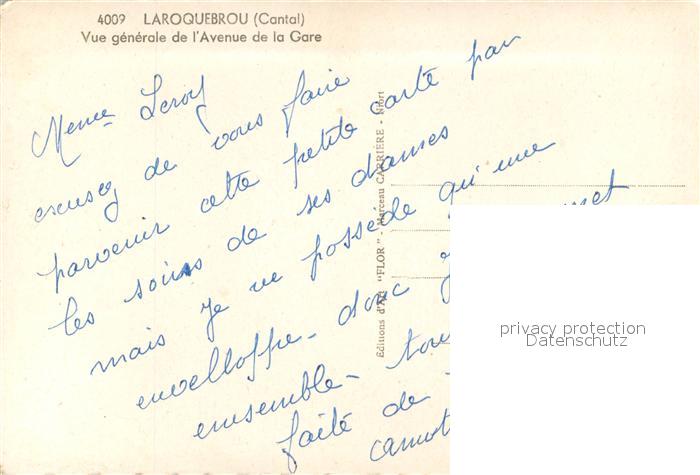 4009 LAROQUEBROU (Cantal)
Vue générale de l'Avenue de la Gare
Mme Leroy
excusez de vous faire
parvenir cette petite carte par
les soins de ses dames
mais je ne possède qu'une
envelloppe - donc
emsemble -
faité de
Editions d'Art "FLOR" - Marceau CARRIÈRE - Niort
privacy protection
Datenschutz